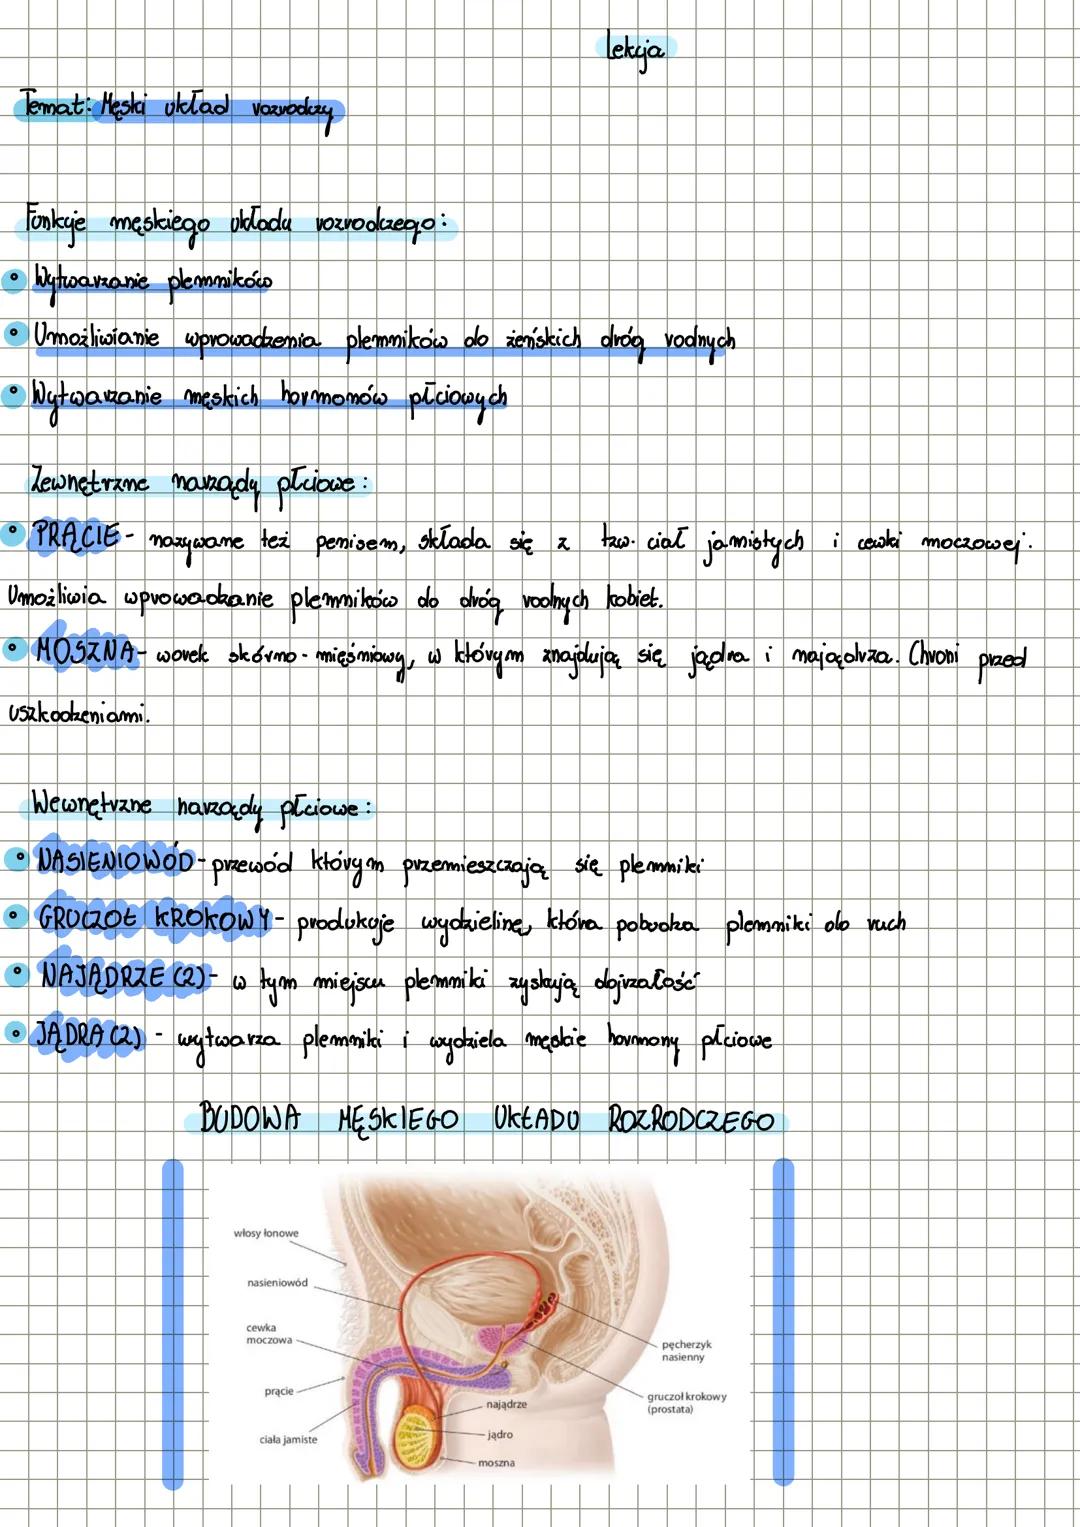 Lekcja
Temat: Męski układ rozrodczy
Funkcje męskiego układu rozrodczego:
Wytwarzanie plemników
Umożliwianie wprowadzenia plemników do żeńskich dróg rodnych
Wytwarzanie męskich hormonów płciowych
Zewnętrzne narządy płciowe:
PRĄCIE - nazywane też penisem, składa się z tzw. ciał jamistych i cewki moczowej.
Umożliwia wprowadzanie plemników do dróg rodnych kobiet.
MOSZNA - worek skórno-mięśniowy, w którym znajdują się jądra i najądrza. Chroni przed
uszkodzeniami.
Wewnętrzne narządy płciowe:
NASIENIOWÓD - przewód którym przemieszczają się plemniki
GRUCZOŁ KROKOWY - produkuje wydzielinę, która pobudza plemniki do ruch
NAJĄDRZE (2) - w tym miejscu plemniki zyskują dojrzałość
JĄDRA (2) - wytwarza plemniki i wydziela męskie hormony płciowe
BUDOWA MĘSKIEGO UKŁADU ROZRODCZEGO
włosy łonowe
nasieniowód
cewka
moczowa
prącie
ciała jamiste
pęcherzyk
nasienny
gruczoł krokowy
(prostata)
najądrze
jądro
moszna